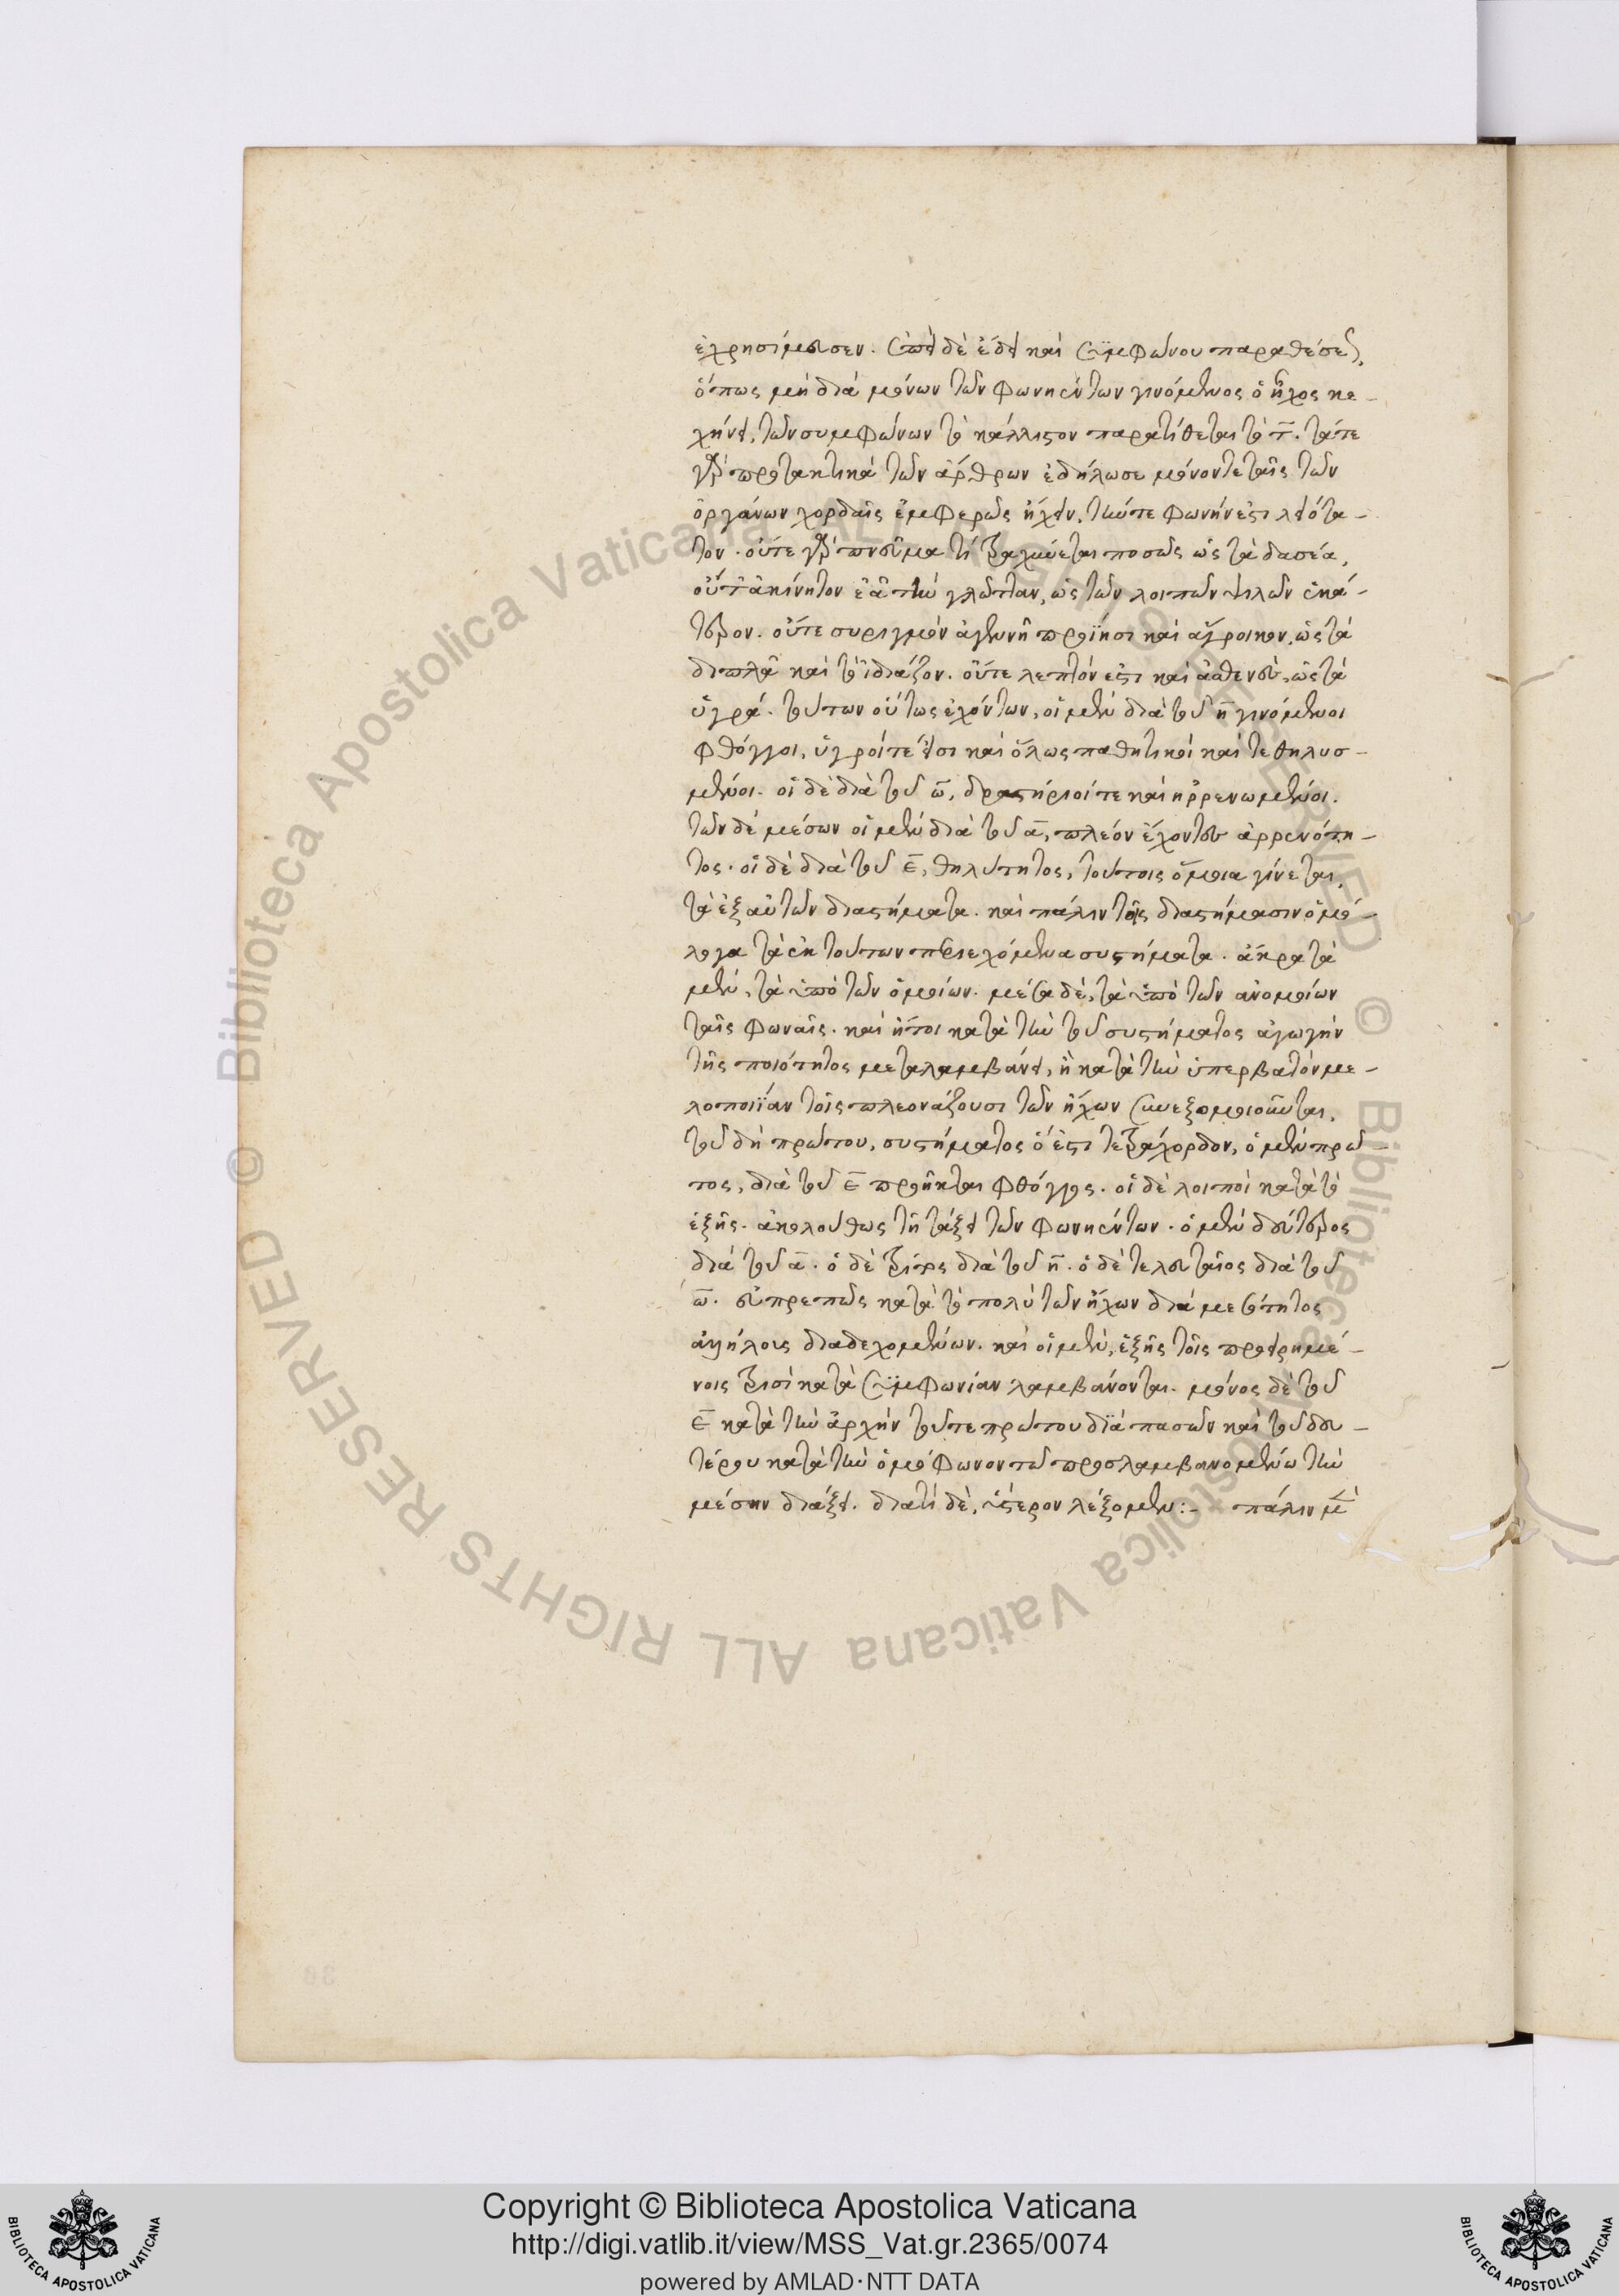 ἐχρησίμευσεν. ἐπεὶ δὲ ἔδει καὶ συμφώνου παραθέσεως,
ὅπως μὴ διὰ μόνων τῶν φωνηέντων γινόμενος ὁ ἦχος κε-
χήνει, τῶν συμφώνων τὸ κάλλιστον παρατίθεται τὸ τ̅. τά τε
γὰρ προτακτικὰ τῶν ἄρθρων ἐδήλωσε μόνον τε ταῖς τῶν
ὀργάνων χορδαῖς ἐμφερῶς ἠχεῖν. τήν τε φωνήν ἐστι λειότα-
τον. οὔτε γὰρ πνεῦμα τί τραχύεται ποσῶς ὡς τὰ δασέα,
οὔτ' ἀκίνητον ἐᾶ τὴν γλῶτταν, ὡς τῶν λοιπῶν ψιλῶν ἑκά-
τερον. οὔτε συριγμὸν ἀγεννῆ προΐησι καὶ ἄγροικον, ὡς τὰ
διπλᾶ καὶ τὸ ἰδιάζον. οὔτε λεπτόν ἐστι καὶ ἀσθενὲς, ὡς τὰ
ὑγρά. τούτων οὕτως ἐχόντων, οἱ μὲν διὰ τοῦ η̅ γινόμενοι
φθόγγοι, ὑγροί τέ εἰσι καὶ ὅλως παθητικοὶ καὶ τεθηλυσ-
μένοι. οἱ δὲ διὰ τοῦ ω̅, δραστήριοί τε καὶ ἠρρενωμένοι.
τῶν δὲ μέσων οἱ μὲν διὰ τοῦ α̅, πλέον ἔχοντες ἀρρενότη-
τος. οἱ δὲ διὰ τοῦ ε̅, θηλύτητος, τούτοις ὅμοια γίνεται,
τὰ ἐξ αὐτῶν διαστήματα. καὶ πάλιν τοῖς διαστήμασιν ὁμό-
λογα τὰ ἐκ τούτων περιεχόμενα συστήματα. ἄκρα τὰ
μὲν, τὰ ὑπὸ τῶν ὁμοίων. μέσα δὲ, τὰ ὑπὸ τῶν ἀνομοίων
ταῖς φωναῖς. καὶ ἤτοι κατὰ τὴν τοῦ συστήματος ἀγωγὴν
τῆς ποιότητος μεταλαμβάνει, ἢ κατὰ τὴν ὑπερβατὸν με-
λοποιΐαν τοῖς πλεονάζουσι τῶν ἤχων συνεξομοιοῦται.
τοῦ δὴ πρώτου, συστήματος ὅ ἐστι τετράχορδον, ὁ μὲν πρῶ-
τος, διὰ τοῦ ε̅ προῆκται φθόγγος. οἱ δὲ λοιποὶ κατὰ τὸ
ἑξῆς. ἀκολούθως τῇ τάξει τῶν φωνηέντων. ὁ μὲν δεύτερος
διὰ τοῦ α̅. ὁ δὲ τρίτος διὰ τοῦ η̅. ὁ δὲ τελευταῖος διὰ τοῦ
ω̅. εὐπρεπῶς κατὰ τὸ πολὺ τῶν ἤχων διὰ μεσότητος
ἀλλήλοις διαδεχομένων. καὶ οἱ μὲν, ἑξῆς τοῖς προειρημέ-
νοις τρισὶ κατὰ συμφωνίαν λαμβάνονται. μόνος δὲ τοῦ
ε̅ κατὰ τὴν ἀρχὴν τοῦ τε πρώτου διὰ πασῶν καὶ τοῦ δευ-
τέρου κατὰ τὴν ὁμόφωνον τῷ προσλαμβανομένῳ τὴν
μέσην διάξει. διατί δὲ, ὕστερον λέξομεν:- πάλιν μὲν